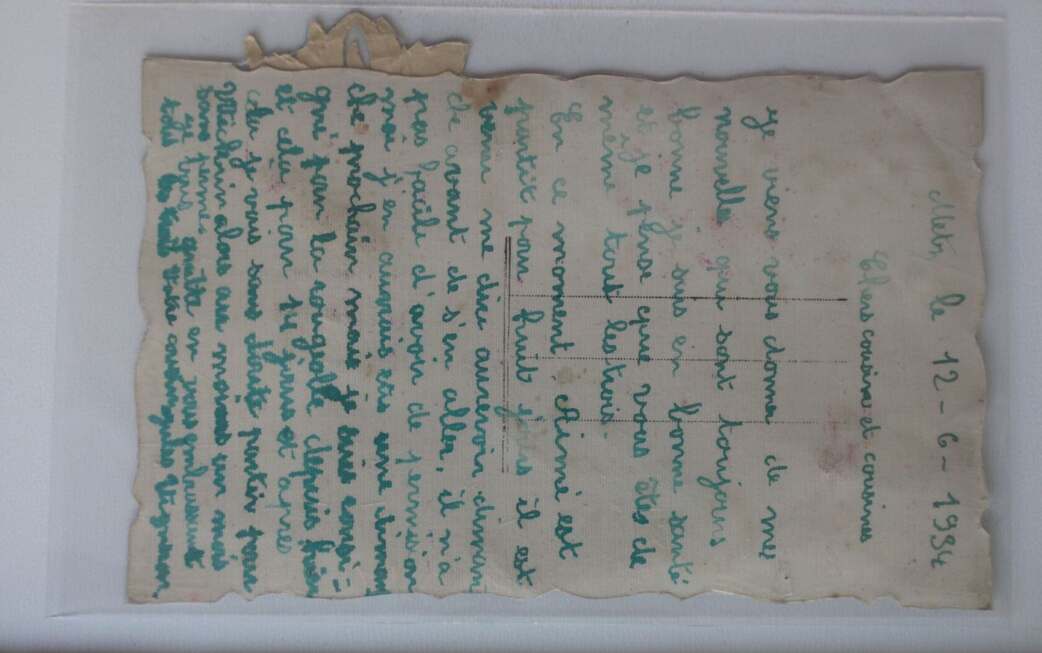 Metz, le 12-6-1934
Chers cousins et cousines
Je viens vous donner de mes
nouvelle qui sont toujours
bonne je suis en bonne santé
et je pense que vous êtes de
même tout les trois.
En ce moment Aimé est
partit pan huit jours il est
venu me dire aurevoir diman
che avant de s'en aller, il n'a
pas facile d'avoir de permision
moi j'en aurais eu une diman
che prochain mais je suis consi-
gné pan la rougeole depuis hier
et cela pan 14 jours et après
cela je vais sans doute partir pour
alors au moins un mois
sans
Je quitte en vous embrassant
tous